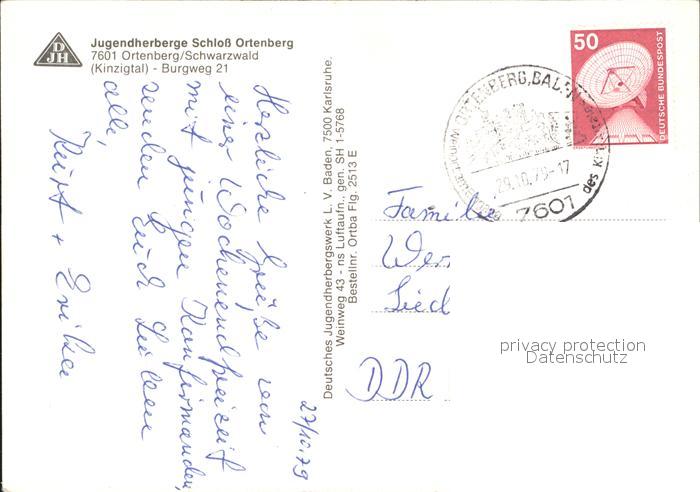 DJH
Jugendherberge Schloß Ortenberg
7601 Ortenberg/Schwarzwald
(Kinzigtal) - Burgweg 21
27/10.79
Herzliche Grüße von
einer Wochenendfreizeit
mit jungen Konfirmanden
senden Euch Lieben
alle,
Kurt + Erika
Deutsches Jugendherbergswerk L. V. Baden, 7500 Karlsruhe.
Weinweg 43 - ns Luftaufn., gen. SH 1-5768
Bestellnr. Ortba Flg. 2513 E
50
DEUTSCHE BUNDESPOST
ORTENBERG, BADEN
29.10.79-17
7601
des
Familie
Wer
Lied
DDR
privacy protection
Datenschutz